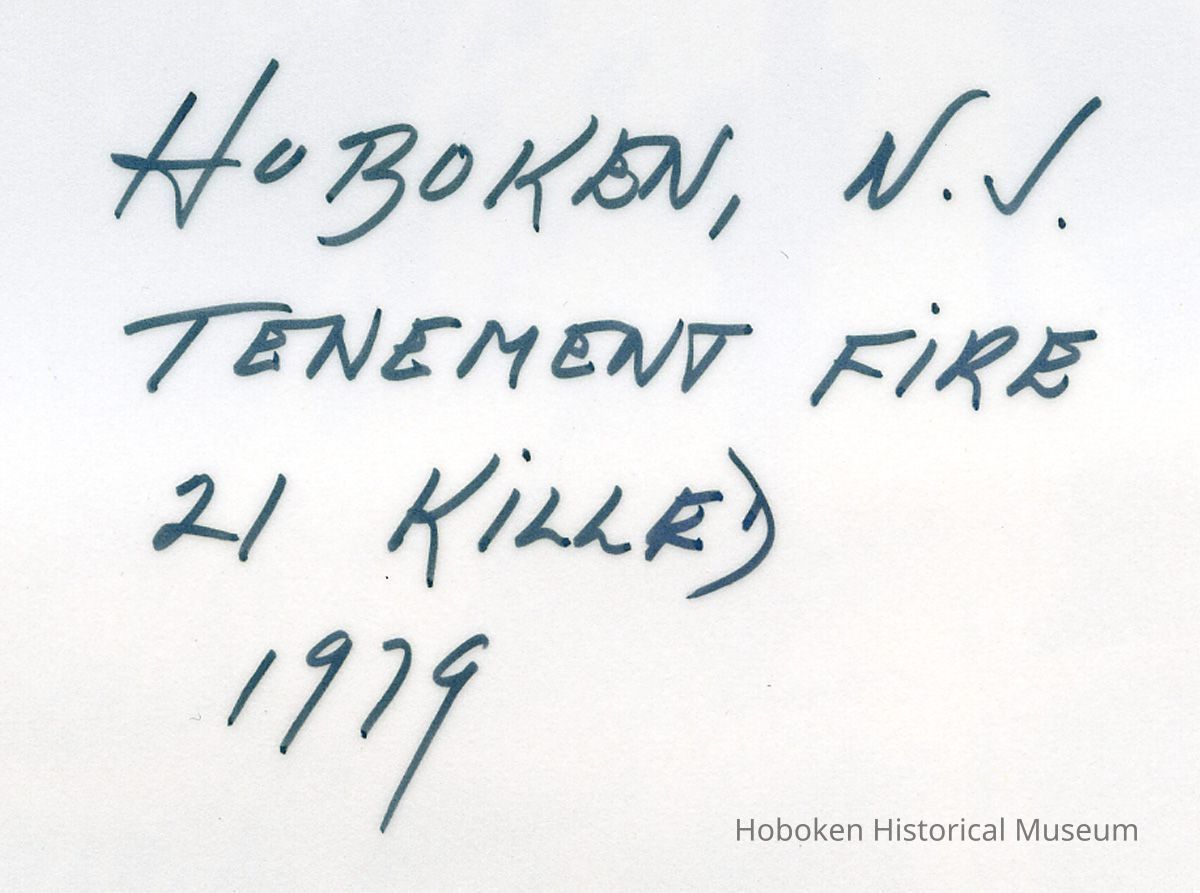 HOBOKEN, N.J.
TENEMENT FIRE
21 KILLED
1979
Hoboken Historical Museum